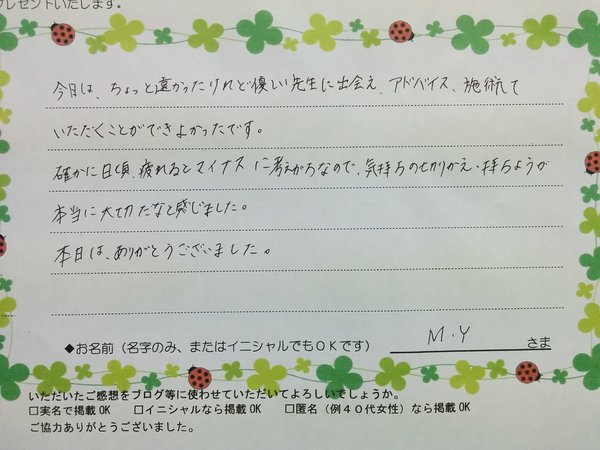 プレゼントいたします。
今日は、ちょっと遠かったけれど優しい先生に出会え、アドバイス、施術して
いただくことができよかったです。
確かに日頃、疲れるとマイナスに考えがちなので、気持ちの切りかえ・持ちようが
本当に大切だなと感じました。
本日は、ありがとうございました。
◆お名前（名字のみ、またはイニシャルでもOKです） M.Y さま
いただいたご感想をブログ等に使わせていただいてよろしいでしょうか。
□実名で掲載OK □イニシャルなら掲載OK □匿名（例40代女性）なら掲載OK
ご協力ありがとうございました。